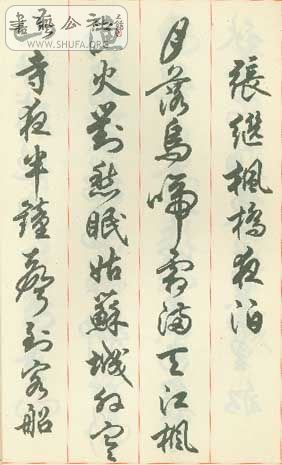 書藝公社
WWW.SHUFA.ORG
張繼楓橋夜泊
月落烏啼霜滿天江楓
漁火對愁眠姑蘇城外寒
山寺夜半鐘聲到客船